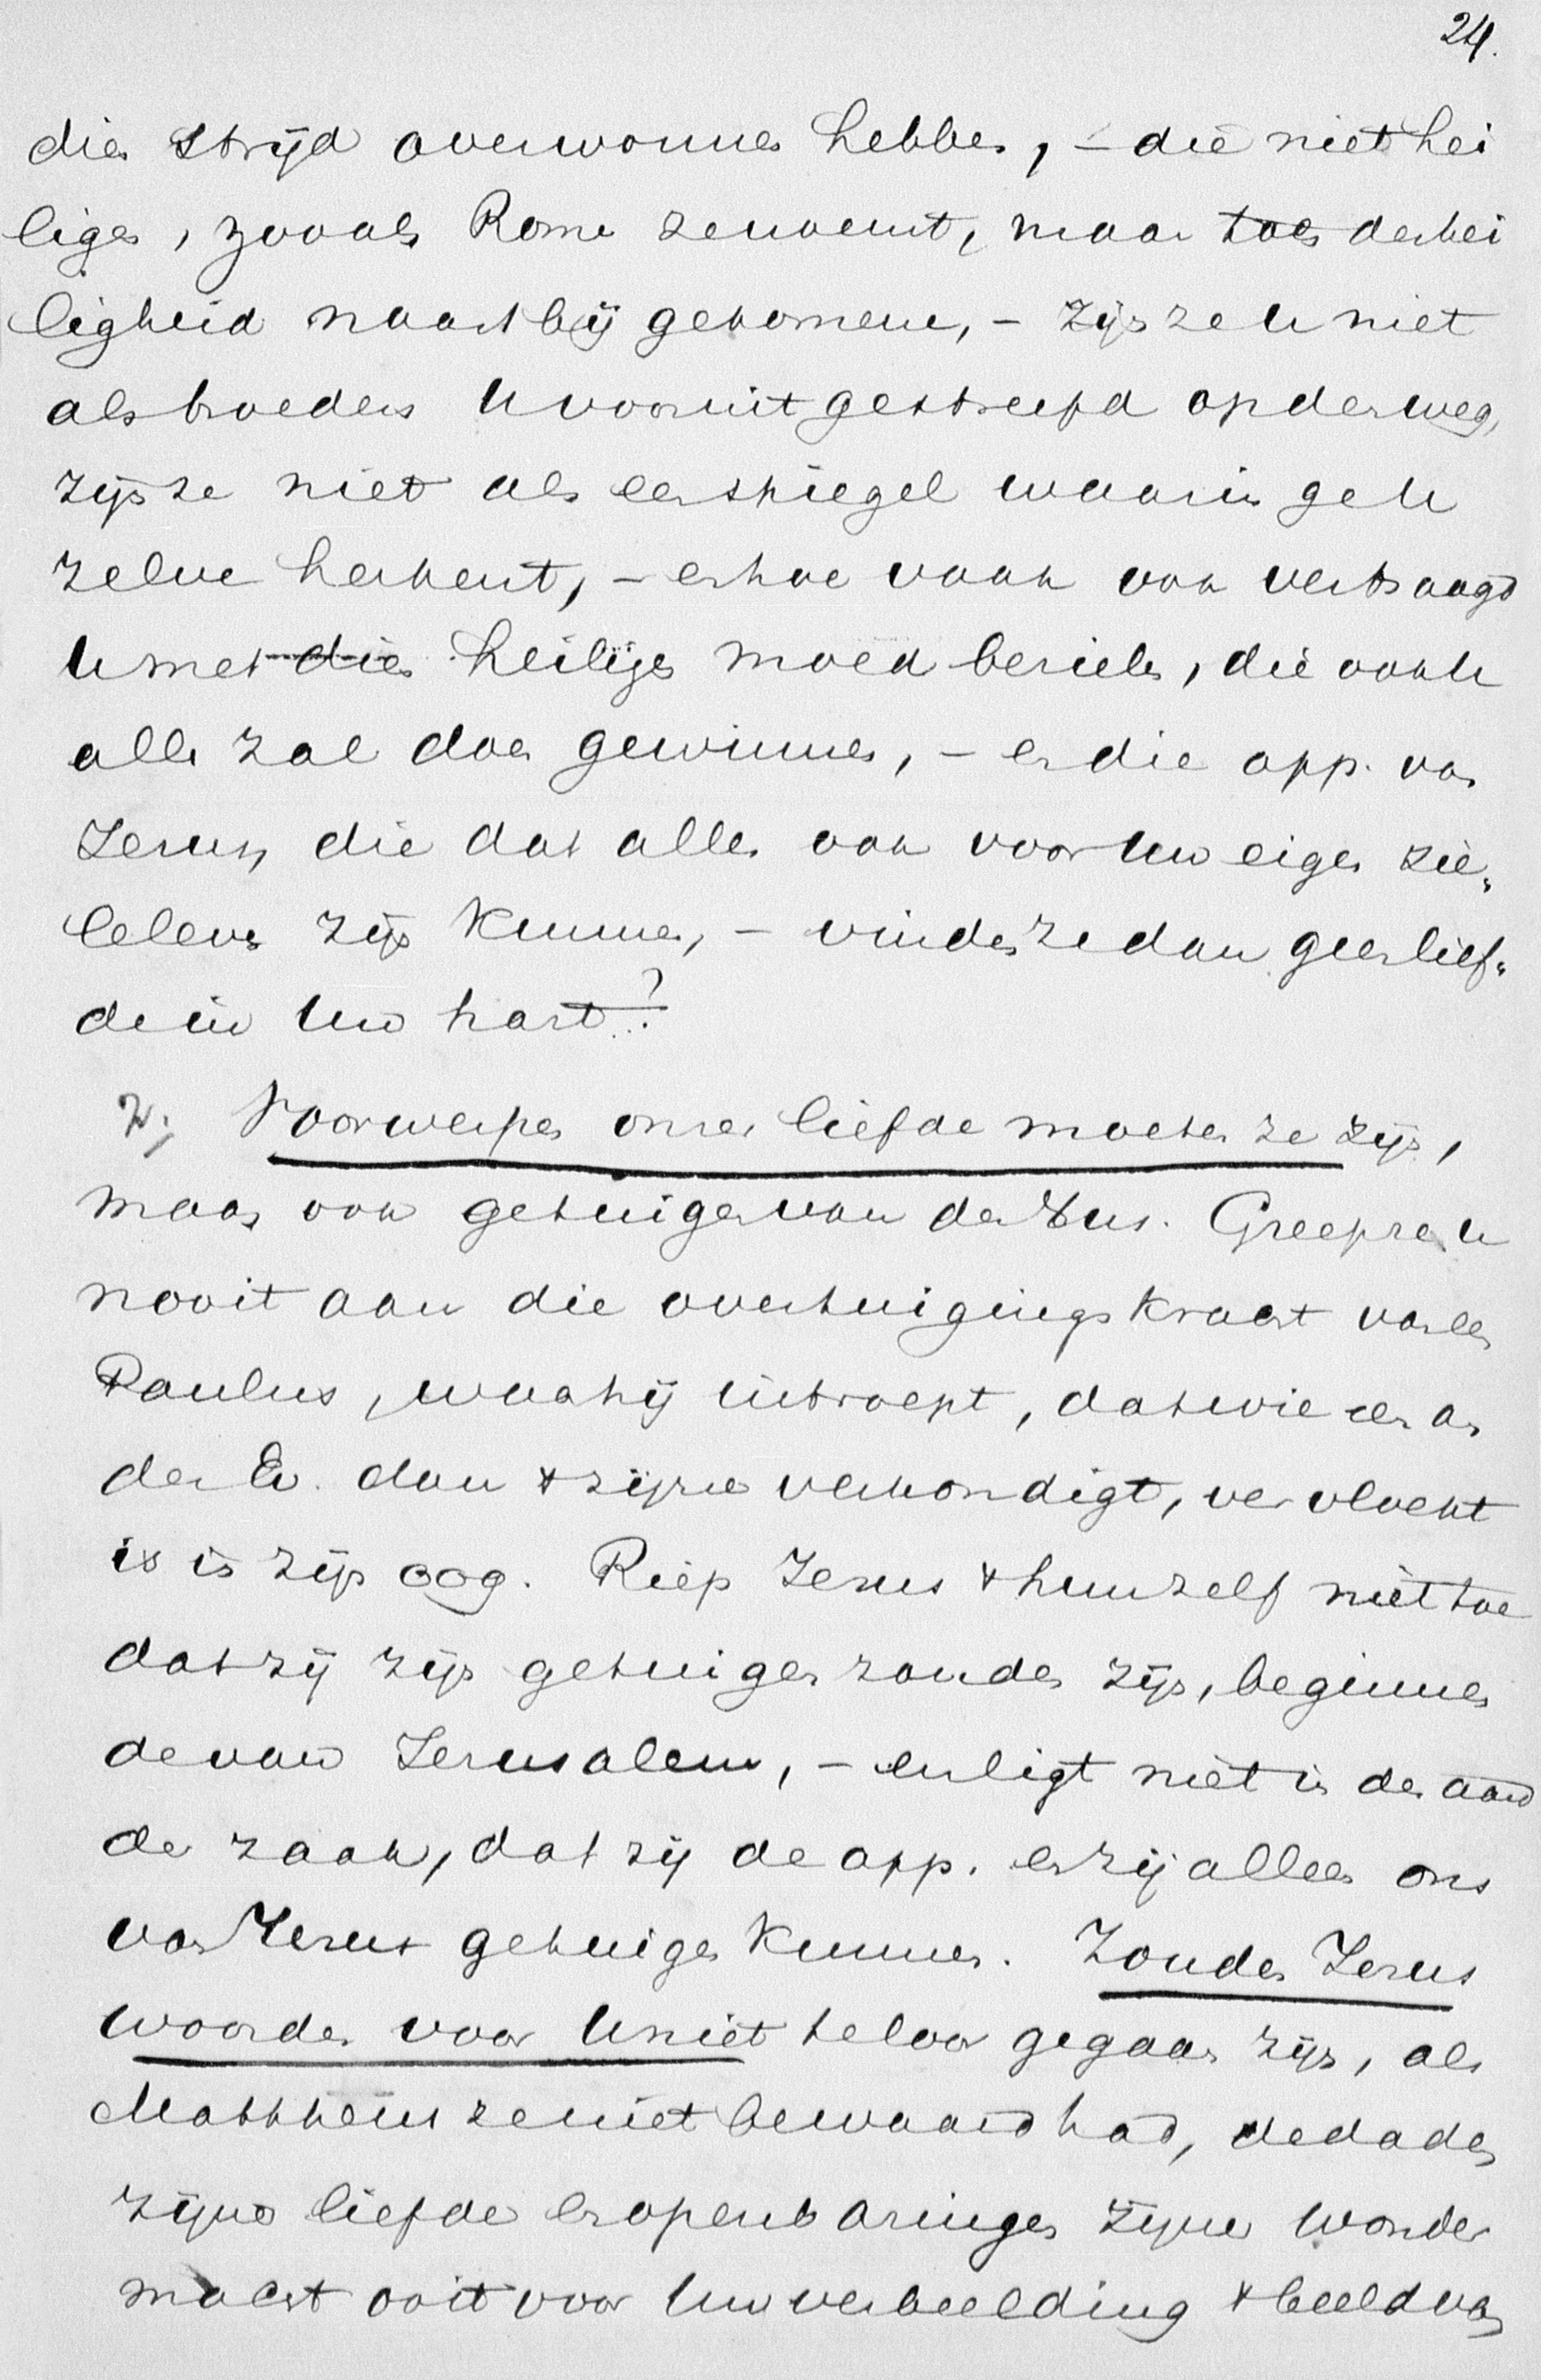 24.
dien strijd overwonnen hebben, – die niet hei
ligen, zooals Rome ze noemt, maar toch der hei
ligheid naast bij gekomene, – zijn ze U niet
als broeders U vooruitgestreefd op den weg,
zijn ze niet als een spiegel waarin ge U
zelve herkent, – en hoe vaak ook vertraagd
U met dien heiligen moed bezielen, die ook U
alles zal doen gewinnen, – en die app. van
Jezus, die dat alles ook voor Uw eigen zie„
leleven zijn kunnen, – vinden ze dan geen lief„
de in Uw hart?
2; Voorwerpen onzer liefde moeten ze zijn,
maar ook getuigen van den Chrs. Greep ze U
nooit aan die overtuigingskracht van een
Paulus, waar hij uitroept, dat wie een an
der Ev. dan + zijne verkondigt, vervloekt
is in zijn oog. Riep Jezus + hun zelf niet toe
dat zij zijn getuigen zouden zijn, beginnen
de van Jerusalem, – en ligt niet in den aard
der zaak, dat zij de app. en zij alleen ons
van Jezus getuigen kunnen. Zouden Jezus
woorden voor U niet te loor gegaan zijn, als
Mattheus ze niet bewaard had, de daden
zijner liefde en openbaringen zijner wonder
macht ooit voor Uw verbeelding + beeld van